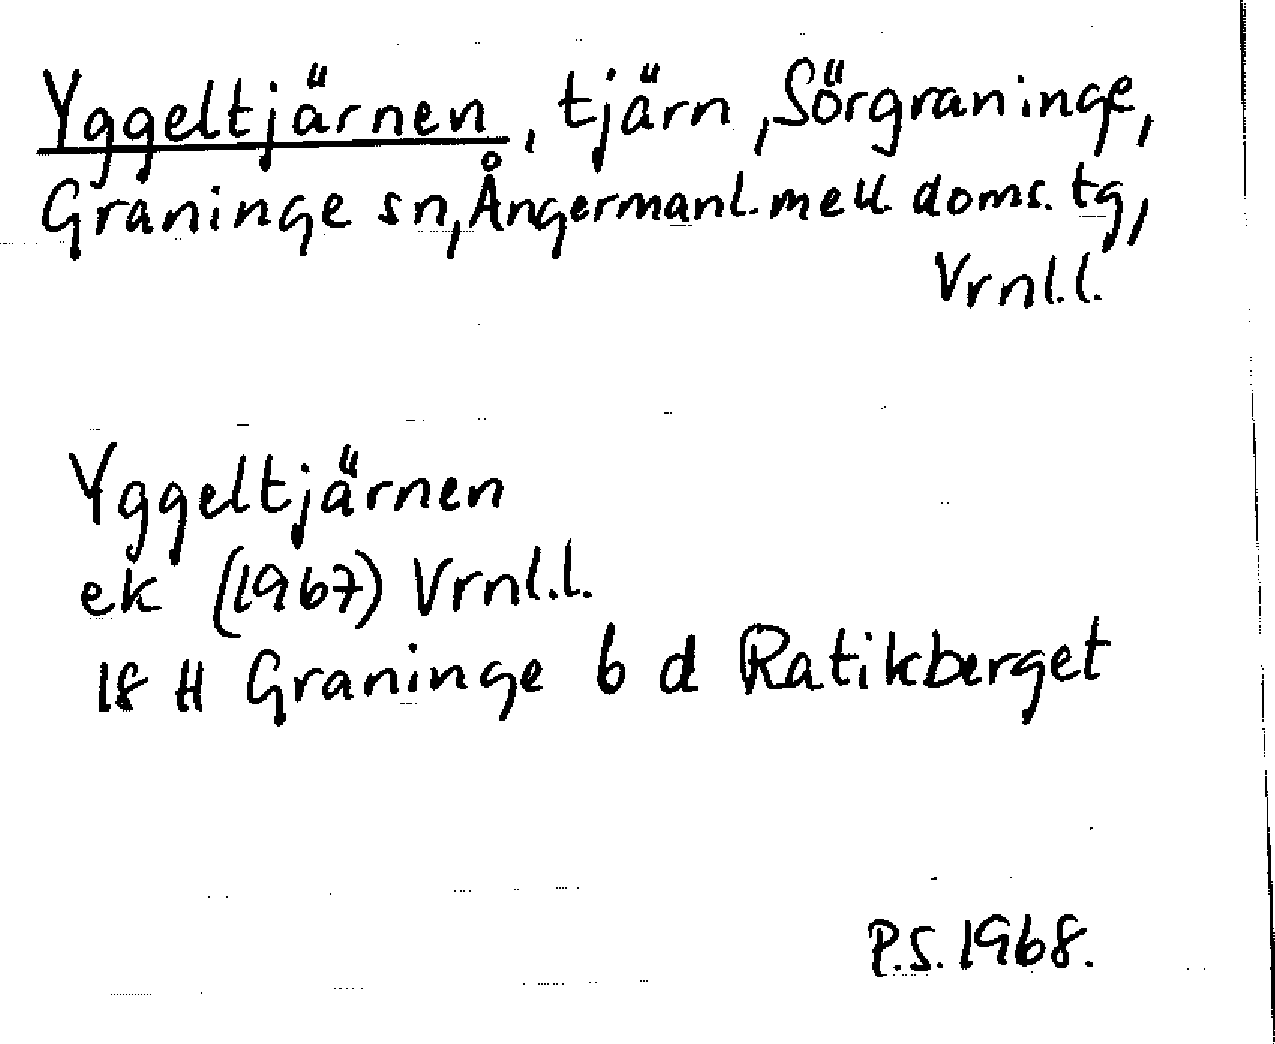 Yggeltjärnen, tjärn, Sörgraninge,
Graninge sn, Ångermanl. mell doms. tg,
Vrnl.l.
Yggeltjärnen
ek (1967) Vrnl.l.
18 H Graninge 6 d Ratikberget
P.S. 1968.